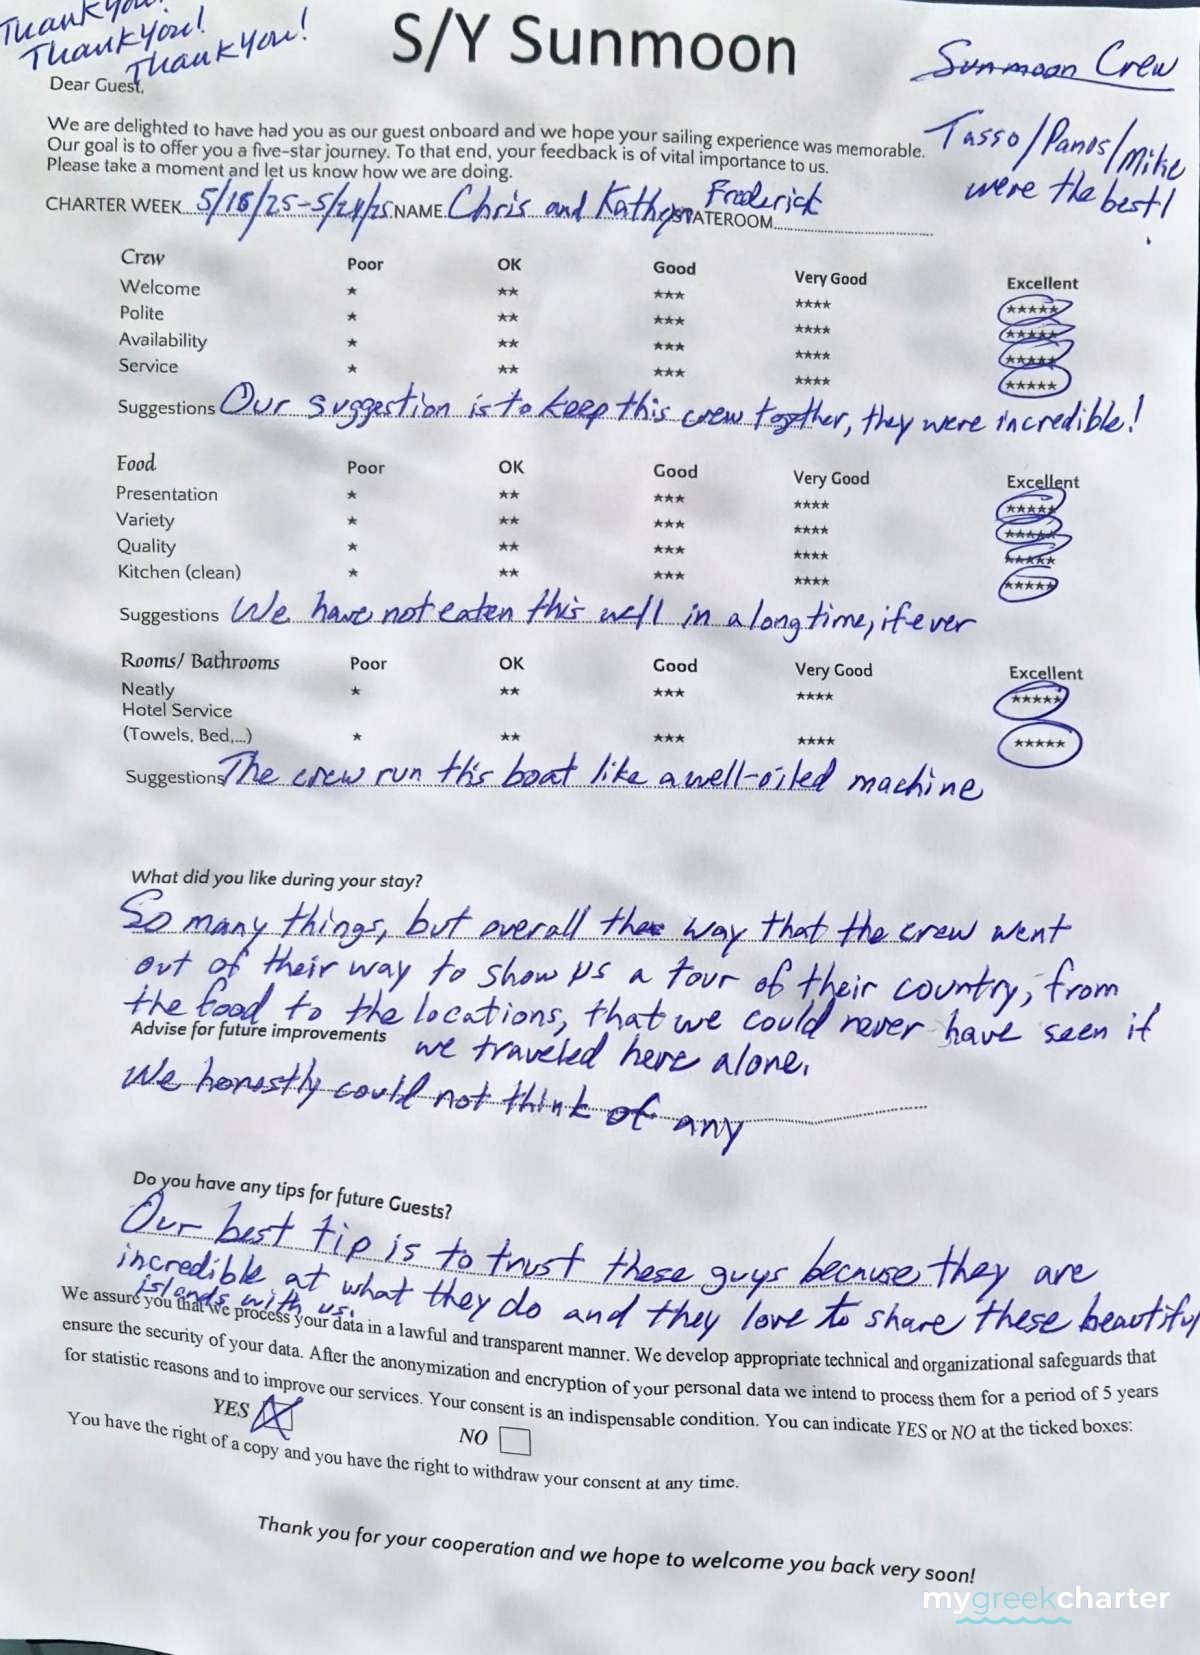 Thank You!
Thank You!
Thank You!
S/Y Sunmoon
Sunmoon Crew
Tasso/Panos/Mike
were the best!
Dear Guest,
We are delighted to have had you as our guest onboard and we hope your sailing experience was memorable.
Our goal is to offer you a five-star journey. To that end, your feedback is of vital importance to us.
Please take a moment and let us know how we are doing.
CHARTER WEEK 5/18/25-5/24/25 NAME Chris and Kathryn Frederick STATEROOM
Crew Poor OK Good Very Good Excellent
Welcome ★ ★★ ★★★ ★★★★ ★★★★★
Polite ★ ★★ ★★★ ★★★★ ★★★★★
Availability ★ ★★ ★★★ ★★★★ ★★★★★
Service ★ ★★ ★★★ ★★★★ ★★★★★
Suggestions Our suggestion is to keep this crew together, they were incredible!
Food Poor OK Good Very Good Excellent
Presentation ★ ★★ ★★★ ★★★★ ★★★★★
Variety ★ ★★ ★★★ ★★★★ ★★★★★
Quality ★ ★★ ★★★ ★★★★ ★★★★★
Kitchen (clean) ★ ★★ ★★★ ★★★★ ★★★★★
Suggestions We have not eaten this well in a long time, if ever
Rooms/ Bathrooms Poor OK Good Very Good Excellent
Neatly ★ ★★ ★★★ ★★★★ ★★★★★
Hotel Service
(Towels, Bed,...) ★ ★★ ★★★ ★★★★ ★★★★★
Suggestions The crew run this boat like a well-oiled machine
What did you like during your stay?
So many things, but overall the way that the crew went
out of their way to show us a tour of their country, from
the food to the locations, that we could never have seen if
we traveled here alone.
Advise for future improvements
We honestly could not think of any
Do you have any tips for future Guests?
Our best tip is to trust these guys because they are
incredible at what they do and they love to share these beautiful
islands with us.
We assure you that we process your data in a lawful and transparent manner. We develop appropriate technical and organizational safeguards that
ensure the security of your data. After the anonymization and encryption of your personal data we intend to process them for a period of 5 years
for statistic reasons and to improve our services. Your consent is an indispensable condition. You can indicate YES or NO at the ticked boxes:
YES NO
You have the right of a copy and you have the right to withdraw your consent at any time.
Thank you for your cooperation and we hope to welcome you back very soon!
mygreekcharter